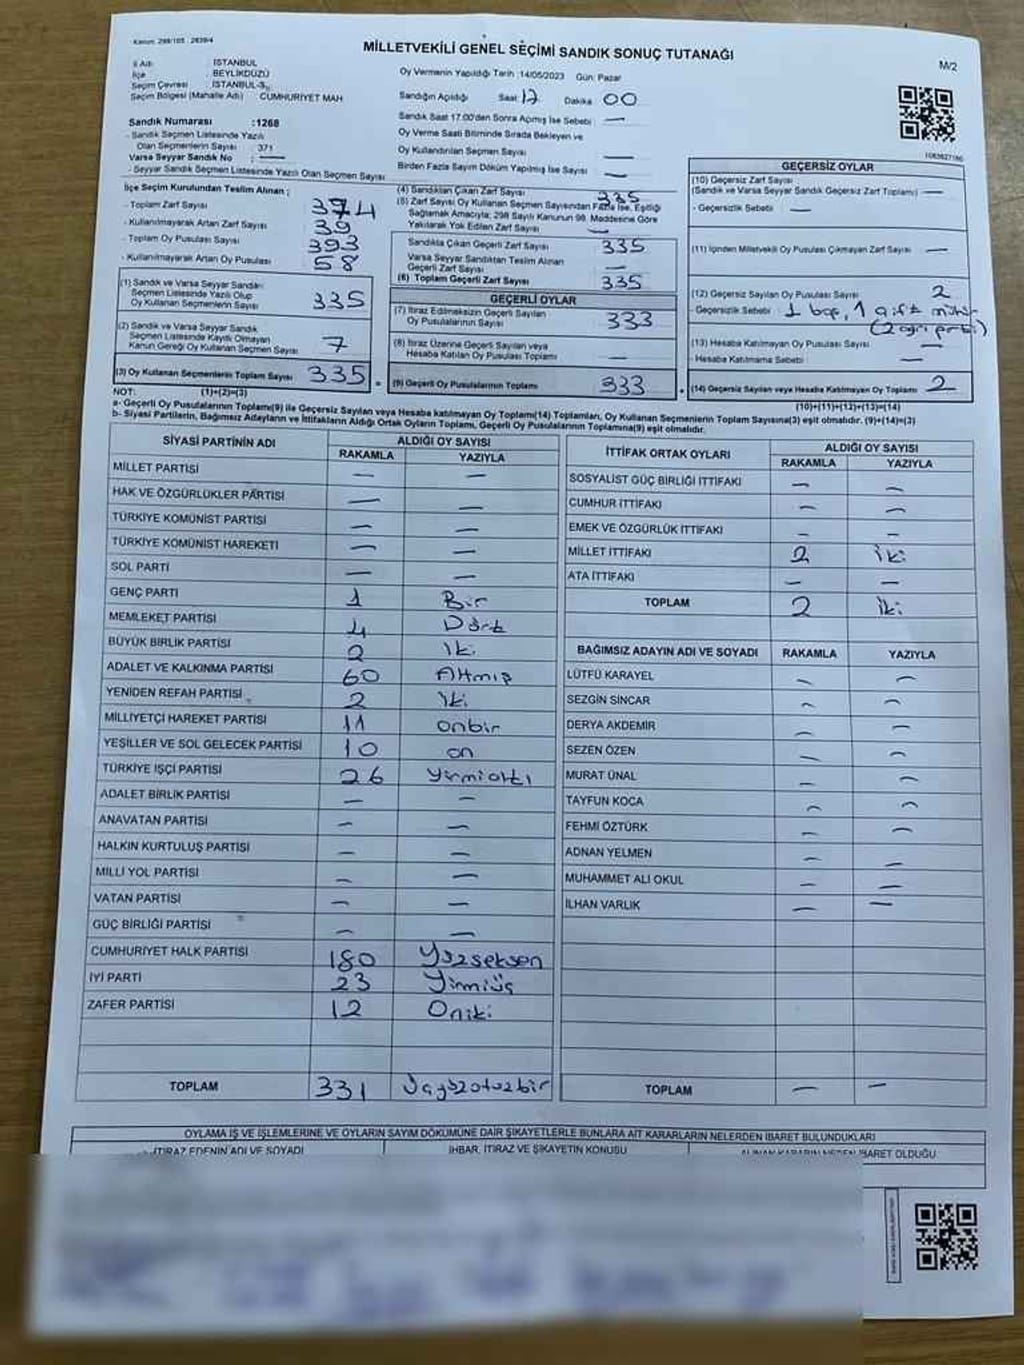 Kanun: 298/105 - 2839/4
MİLLETVEKİLİ GENEL SEÇİMİ SANDIK SONUÇ TUTANAĞI
M/2
İl Adı : İSTANBUL
İlçe : BEYLİKDÜZÜ
Seçim Çevresi : İSTANBUL-3
Seçim Bölgesi (Mahalle Adı) : CUMHURİYET MAH
Oy Vermenin Yapıldığı Tarih :14/05/2023 Gün: Pazar
Sandığın Açıldığı Saat 17 Dakika 00
Sandık Saat 17.00'den Sonra Açımış İse Sebebi : —
Oy Verme Saati Bitiminde Sırada Bekleyen ve
Oy Kullandırılan Seçmen Sayısı : —
Birden Fazla Sayım Döküm Yapılmış İse Sayısı : —
Sandık Numarası :1268
- Sandık Seçmen Listesinde Yazılı
Olan Seçmenlerin Sayısı : 371
Varsa Seyyar Sandık No : —
- Seyyar Sandık Seçmen Listesinde Yazılı Olan Seçmen Sayısı
İlçe Seçim Kurulundan Teslim Alınan ;
- Toplam Zarf Sayısı 374
- Kullanılmayarak Artan Zarf Sayısı 39
- Toplam Oy Pusulası Sayısı 393
- Kullanılmayarak Artan Oy Pusulası 58
(1) Sandık ve Varsa Seyyar Sandık
Seçmen Listesinde Yazılı Olup
Oy Kullanan Seçmenlerin Sayısı 335
(2) Sandık ve Varsa Seyyar Sandık
Seçmen Listesinde Kayıtlı Olmayan
Kanun Gereği Oy Kullanan Seçmen Sayısı 7
(3) Oy Kullanan Seçmenlerin Toplam Sayısı 335
(1)+(2)=(3)
(4) Sandıktan Çıkan Zarf Sayısı 335
(5) Zarf Sayısı Oy Kullanan Seçmen Sayısından Fazla İse, Eşitliği
Sağlamak Amacıyla; 298 Sayılı Kanunun 98. Maddesine Göre
Yakılarak Yok Edilen Zarf Sayısı —
Sandıkta Çıkan Geçerli Zarf Sayısı 335
Varsa Seyyar Sandıktan Teslim Alınan
Geçerli Zarf Sayısı —
(6) Toplam Geçerli Zarf Sayısı 335
GEÇERLİ OYLAR
(7) İtiraz Edilmeksizin Geçerli Sayılan
Oy Pusulalarının Sayısı 333
(8) İtiraz Üzerine Geçerli Sayılan veya
Hesaba Katılan Oy Pusulası Toplamı —
(9) Geçerli Oy Pusulalarının Toplamı 333
1063627186
GEÇERSİZ OYLAR
(10) Geçersiz Zarf Sayısı
(Sandık ve Varsa Seyyar Sandık Geçersiz Zarf Toplamı) —
- Geçersizlik Sebebi : —
(11) İçinden Milletvekili Oy Pusulası Çıkmayan Zarf Sayısı —
(12) Geçersiz Sayılan Oy Pusulası Sayısı 2
- Geçersizlik Sebebi : 1 boş, 1 çift mühür
(13) Hesaba Katılmayan Oy Pusulası Sayısı —
- Hesaba Katılmama Sebebi : —
(14) Geçersiz Sayılan veya Hesaba Katılmayan Oy Toplamı 2
(10)+(11)+(12)+(13)=(14)
NOT:
a- Geçerli Oy Pusulalarının Toplamı(9) ile Geçersiz Sayılan veya Hesaba katılmayan Oy Toplamı(14) Toplamları, Oy Kullanan Seçmenlerin Toplam Sayısına(3) eşit olmalıdır. (9)+(14)=(3)
b- Siyasi Partilerin, Bağımsız Adayların ve İttifakların Aldığı Ortak Oyların Toplamı, Geçerli Oy Pusulalarının Toplamına(9) eşit olmalıdır.
SİYASİ PARTİNİN ADI ALDIĞI OY SAYISI
RAKAMLA YAZIYLA
MİLLET PARTİSİ — —
HAK VE ÖZGÜRLÜKLER PARTİSİ — —
TÜRKİYE KOMÜNİST PARTİSİ — —
TÜRKİYE KOMÜNİST HAREKETİ — —
SOL PARTİ — —
GENÇ PARTİ 1 Bir
MEMLEKET PARTİSİ 4 Dört
BÜYÜK BİRLİK PARTİSİ 2 İki
ADALET VE KALKINMA PARTİSİ 60 Altmış
YENİDEN REFAH PARTİSİ 2 İki
MİLLİYETÇİ HAREKET PARTİSİ 11 onbir
YEŞİLLER VE SOL GELECEK PARTİSİ 10 on
TÜRKİYE İŞÇİ PARTİSİ 26 yirmialtı
ADALET BİRLİK PARTİSİ — —
ANAVATAN PARTİSİ — —
HALKIN KURTULUŞ PARTİSİ — —
MİLLİ YOL PARTİSİ — —
VATAN PARTİSİ — —
GÜÇ BİRLİĞİ PARTİSİ — —
CUMHURİYET HALK PARTİSİ 180 Yüzseksen
İYİ PARTİ 23 Yirmiüç
ZAFER PARTİSİ 12 Oniki
TOPLAM 331 Üçyüzotuzbir
İTTİFAK ORTAK OYLARI ALDIĞI OY SAYISI
RAKAMLA YAZIYLA
SOSYALİST GÜÇ BİRLİĞİ İTTİFAKI — —
CUMHUR İTTİFAKI — —
EMEK VE ÖZGÜRLÜK İTTİFAKI — —
MİLLET İTTİFAKI 2 İki
ATA İTTİFAKI — —
TOPLAM 2 İki
BAĞIMSIZ ADAYIN ADI VE SOYADI RAKAMLA YAZIYLA
LÜTFÜ KARAYEL — —
SEZGİN SİNCAR — —
DERYA AKDEMİR — —
SEZEN ÖZEN — —
MURAT ÜNAL — —
TAYFUN KOCA — —
FEHMİ ÖZTÜRK — —
ADNAN YELMEN — —
MUHAMMET ALİ OKUL — —
İLHAN VARLIK — —
TOPLAM — —
OYLAMA İŞ VE İŞLEMLERİNE VE OYLARIN SAYIM DÖKÜMÜNE DAİR ŞİKAYETLERLE BUNLARA AİT KARARLARIN NELERDEN İBARET BULUNDUKLARI
İTİRAZ EDENİN ADI VE SOYADI İHBAR, İTİRAZ VE ŞİKAYETİN KONUSU ALINAN KARARIN NEDEN İBARET OLDUĞU